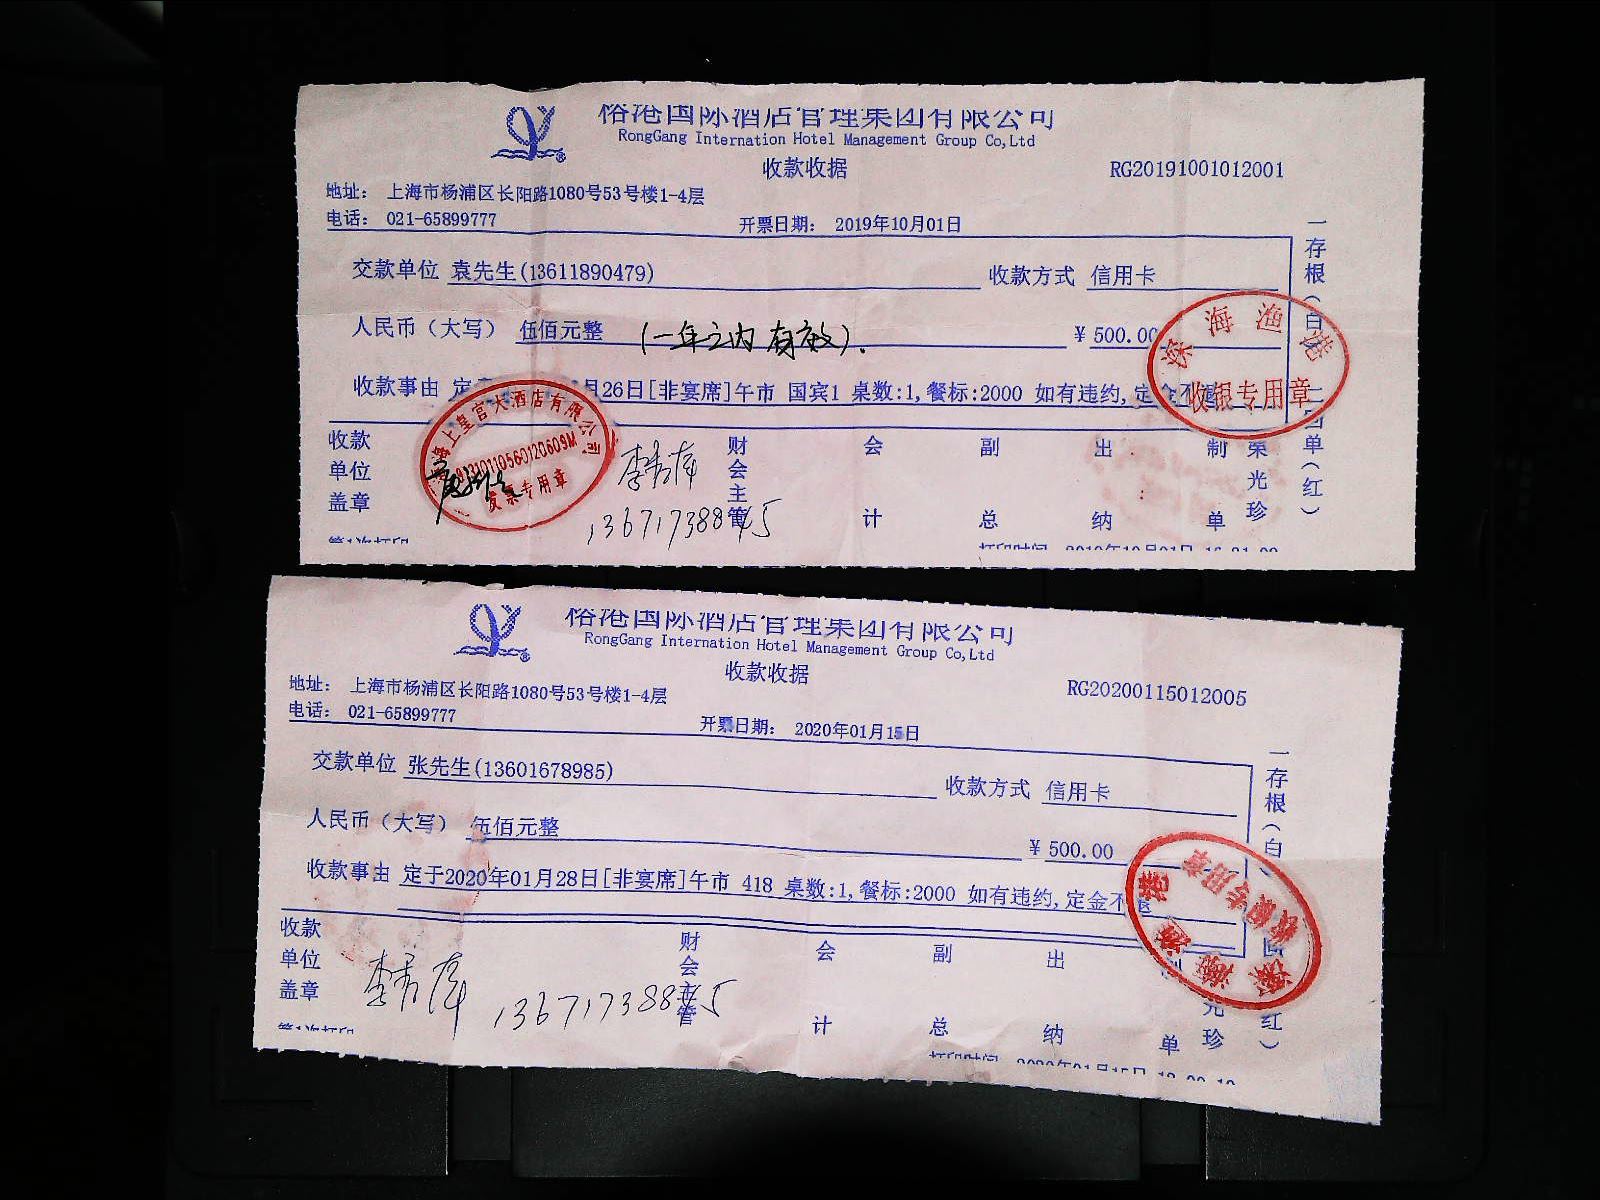 榕港国际酒店管理集团有限公司
RongGang Internation Hotel Management Group Co,Ltd
收款收据
RG20191001012001
地址： 上海市杨浦区长阳路1080号53号楼1-4层
电话： 021-65899777
开票日期： 2019年10月01日
交款单位 袁先生(13611890479)
收款方式 信用卡
人民币（大写） 伍佰元整 (一年之内有效).
¥ 500.00
收款事由 定 月26日[非宴席]午市 国宾1 桌数:1,餐标:2000 如有违约,定金不退
一存根（白）二回单（红）
深海渔港
收银专用章
上海上皇宫大酒店有限公司
91310110560120609M
发票专用章
收款单位盖章
财会主管
会计
副总
出纳
制单
荣光珍
13671738845
第1次打印
打印时间 2019年10月01日
榕港国际酒店管理集团有限公司
RongGang Internation Hotel Management Group Co,Ltd
收款收据
RG20200115012005
地址： 上海市杨浦区长阳路1080号53号楼1-4层
电话： 021-65899777
开票日期： 2020年01月15日
交款单位 张先生(13601678985)
收款方式 信用卡
人民币（大写） 伍佰元整
¥ 500.00
收款事由 定于2020年01月28日[非宴席]午市 418 桌数:1,餐标:2000 如有违约,定金不退
一存根（白 回 红）
深海渔港
收银专用章
收款单位盖章
财会主管
会计
副总
出纳
单
光珍
13671738845
第1次打印
打印时间 2020年01月15日